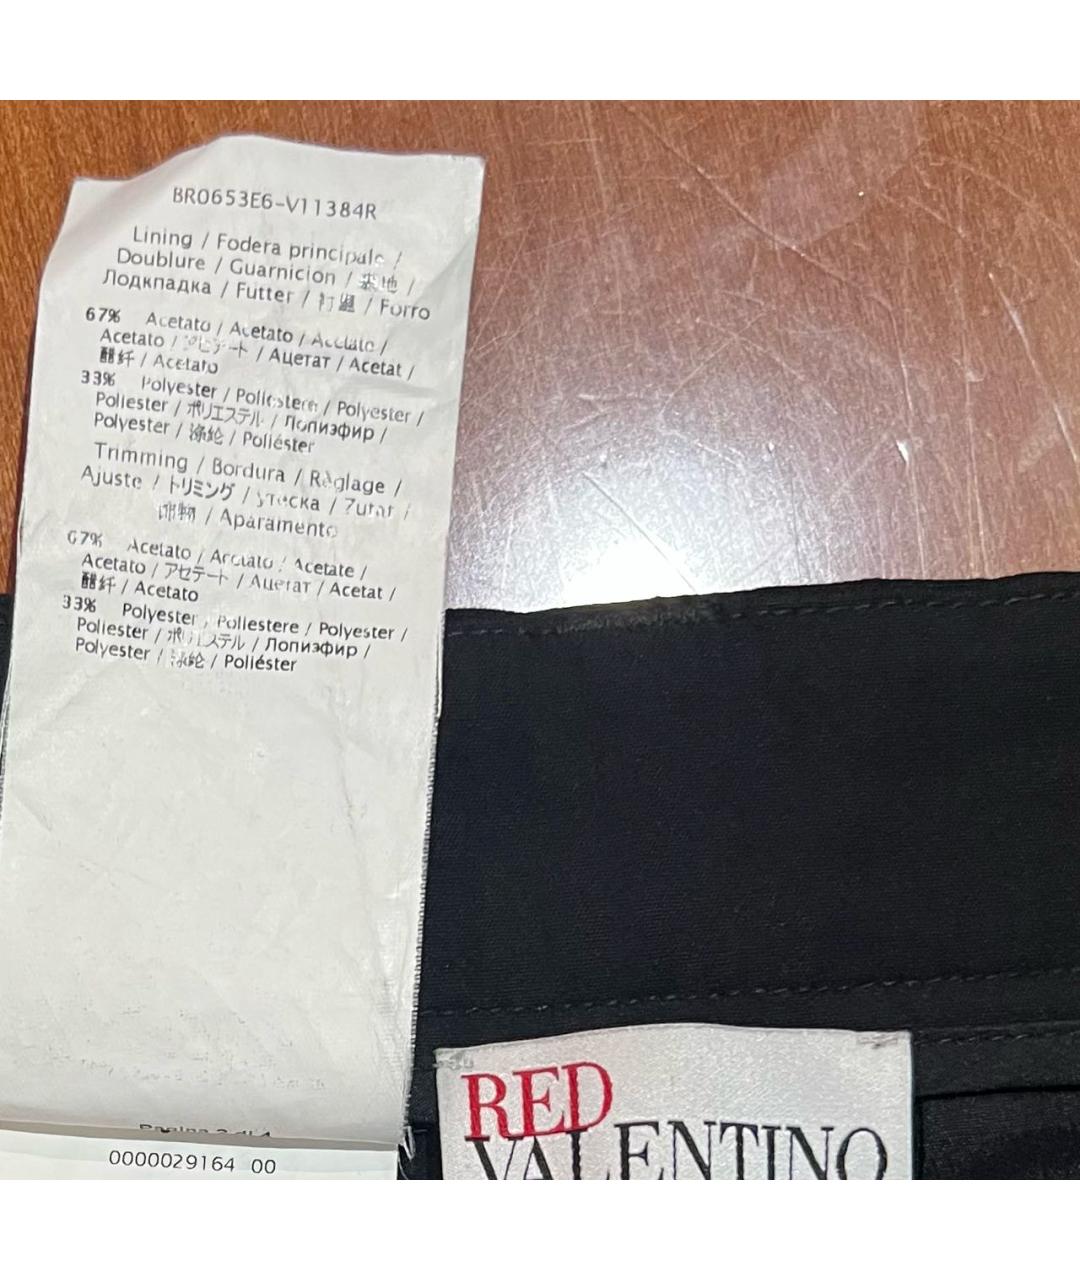 BR0653E6-V11384R
Lining / Fodera principale /
Doublure / Guarnicion / 裏地 /
Лодкпадка / Futter / / Forro
67% Acetato / Acetato / Acetate /
Acetato / アセテート / Ацетат / Acetat /
醋纤 / Acetato
33% Polyester / Poliestere / Polyester /
Poliester / ポリエステル / Лопиэфир /
Polyester / 涤纶 / Poliéster
Trimming / Bordura / Règlage /
Ajuste / トリミング / / Zutat /
/ Aparamento
67% Acetato / Acetato / Acetate /
Acetato / アセテート / Ацетат / Acetat /
醋纤 / Acetato
33% Polyester / Poliestere / Polyester /
Poliester / ポリエステル / Лопиэфир /
Polyester / 涤纶 / Poliéster
Pagina 2 di 4
0000029164 00
RED
VALENTINO